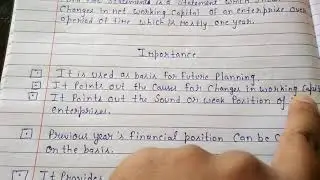 Statements is a statement which show
Changes in net working Capital of an enterprise over
aperiod of time which is mostly one year.
Importance
It is used as basis for future Planning
It Points out the Causes for Changes in working Capit
It Points out the Sound or weak Position of
enterprises.
Previous year's financial position Can be C
on the basis.
It Provides